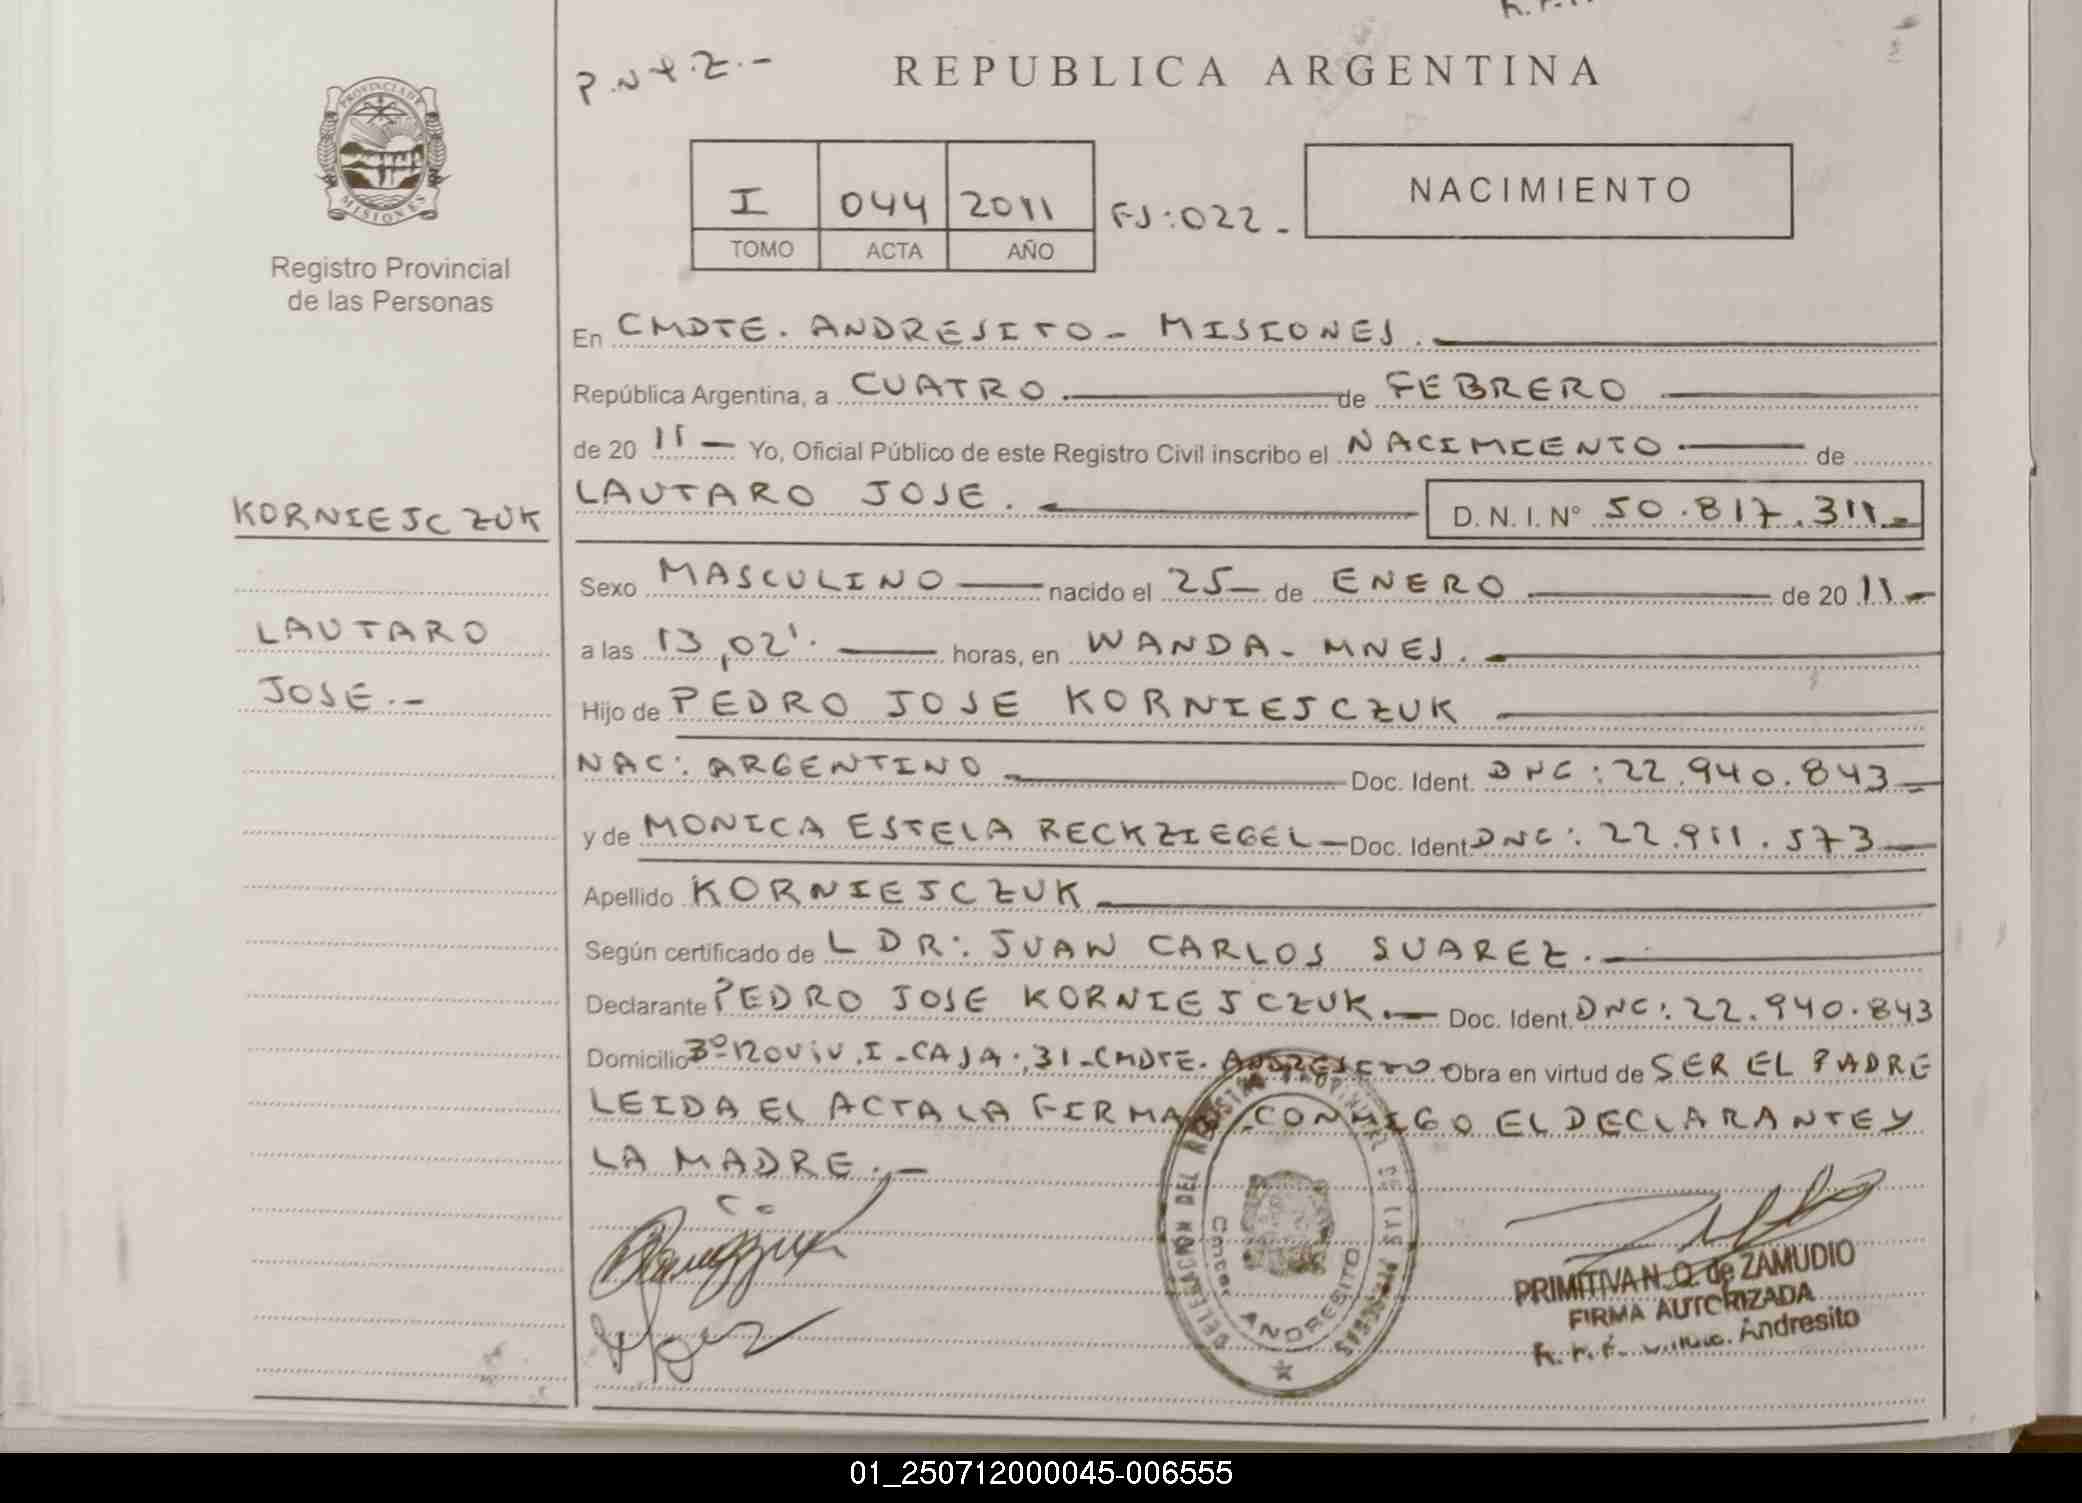 P.N.Y.Z.-
REPUBLICA ARGENTINA
PROVINCIA DE MISIONES
Registro Provincial
de las Personas
I 044 2011 FJ:022.-
TOMO ACTA AÑO
NACIMIENTO
En CMDTE. ANDRESITO - MISIONES.
República Argentina, a CUATRO. de FEBRERO
de 20 11 - Yo, Oficial Público de este Registro Civil inscribo el NACIMIENTO de
LAUTARO JOSE. D. N. I. Nº 50.817.311.-
KORNIEJCZUK
LAUTARO
JOSE.-
Sexo MASCULINO nacido el 25 - de ENERO de 20 11.-
a las 13,02'. horas, en WANDA - MNES.
Hijo de PEDRO JOSE KORNIEJCZUK
NAC: ARGENTINO Doc. Ident. DNI: 22.940.843 -
y de MONICA ESTELA RECKZIEGEL - Doc. Ident. DNI: 22.911.573 -
Apellido KORNIEJCZUK
Según certificado de L DR: JUAN CARLOS SUAREZ.
Declarante PEDRO JOSE KORNIEJCZUK.- Doc. Ident. DNI: 22.940.843
Domicilio 3º 120 VIV. I - CASA: 31 - CMDTE. ANDRESITO Obra en virtud de SER EL PADRE
LEIDA EL ACTA LA FIRMA CONMIGO EL DECLARANTE Y
LA MADRE.-
DELEGACION DEL REGISTRO PROVINCIAL DE LAS PERSONAS
ANDRESITO
PRIMITIVA N. O. de ZAMUDIO
FIRMA AUTORIZADA
Andresito
01_250712000045-006555